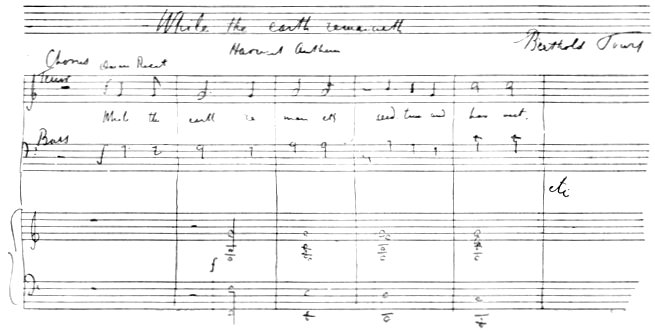 While the earth remaineth
Harvest Anthem
Berthold Tours
Chorus
Tenor
While the earth re main eth seed time and harvest.
Bass
etc